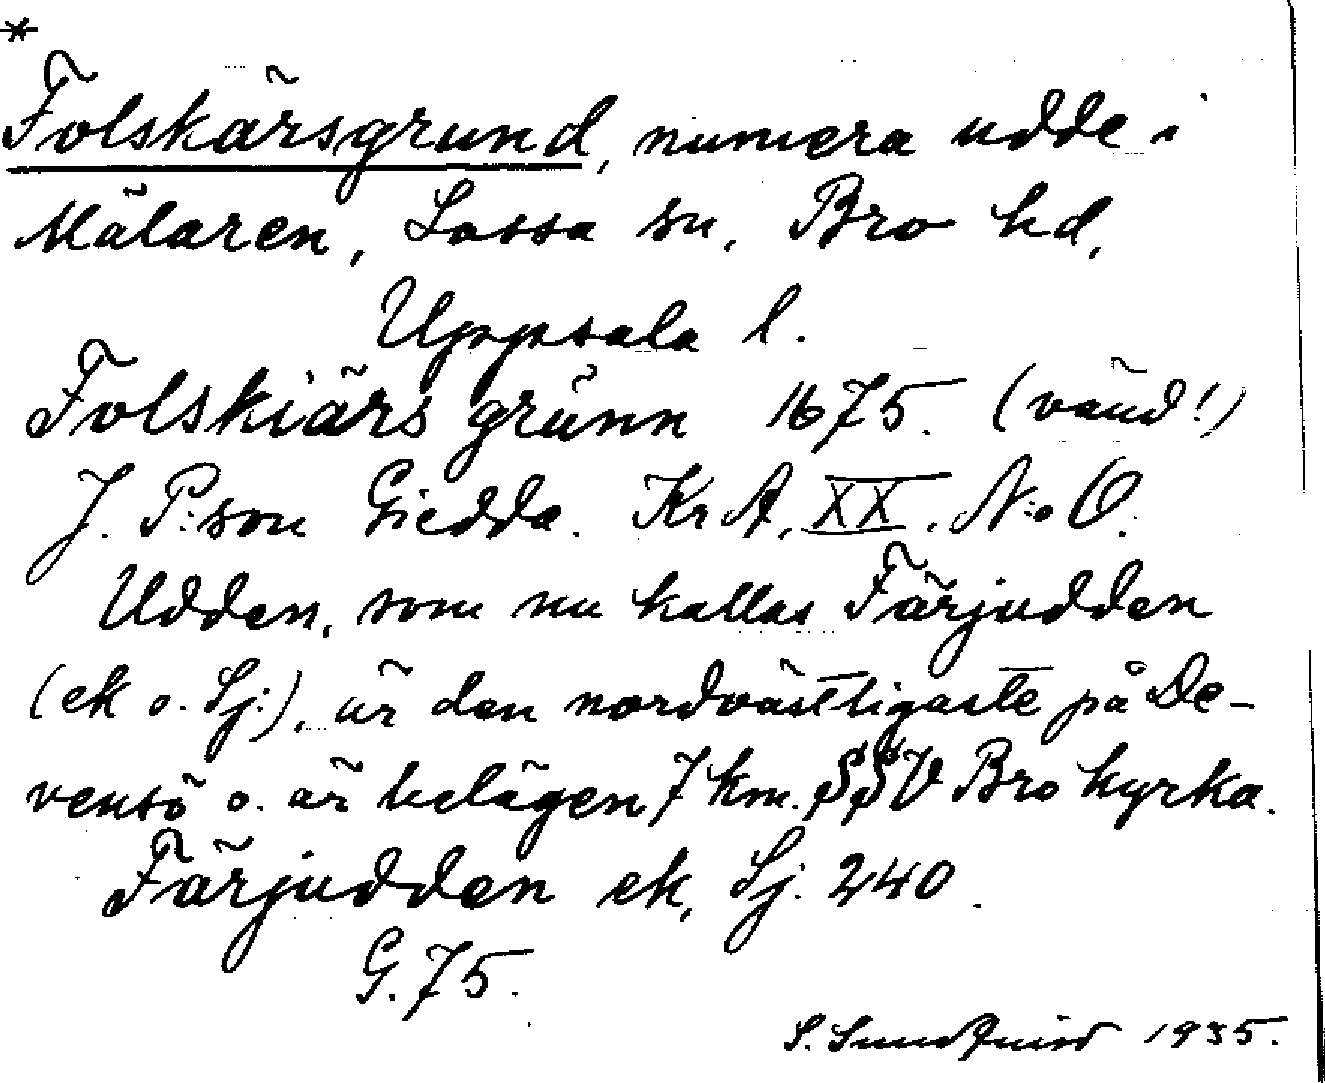 *
Folskärsgrund, numera udde i
Mälaren, Lossa sn, Bro hd,
Uppsala l.
Folskiärs grünn 1675. (vänd!)
J. P:son Giedda. Kr A, XX, N:o O.
Udden, som nu kallas Färjudden
(ek o. Sj:), är den nordvästligaste på De-
vensö o. är belägen 7 km. SSV Bro kyrka.
Färjudden ek, Sj. 240.
G. 75.
S. Sundquist 1935.